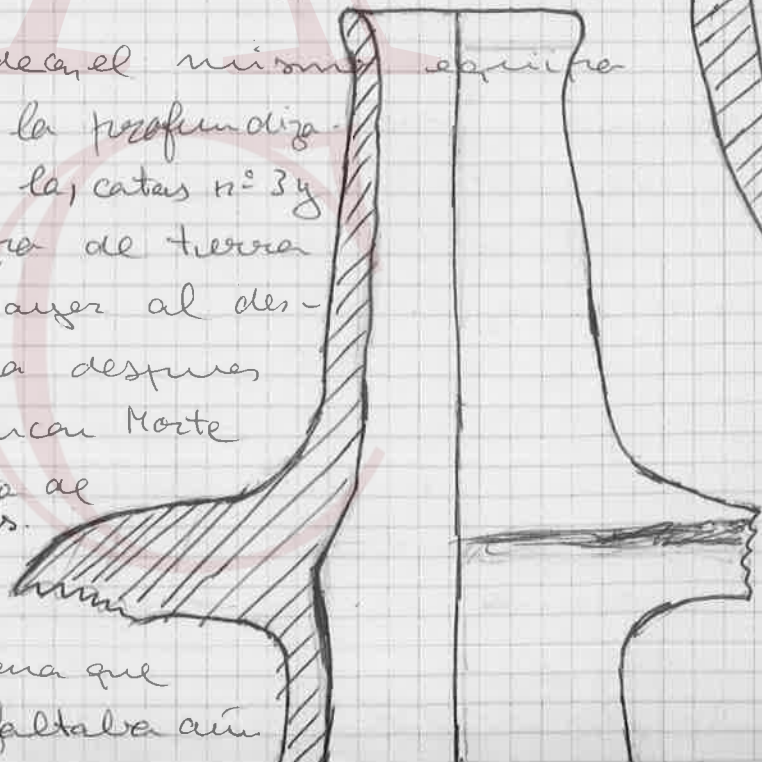 el mismo equipo
la profundiza-
las catas nº 3 y
de tierra
ayer al des-
a despues
Morte
de
que
faltaba aún